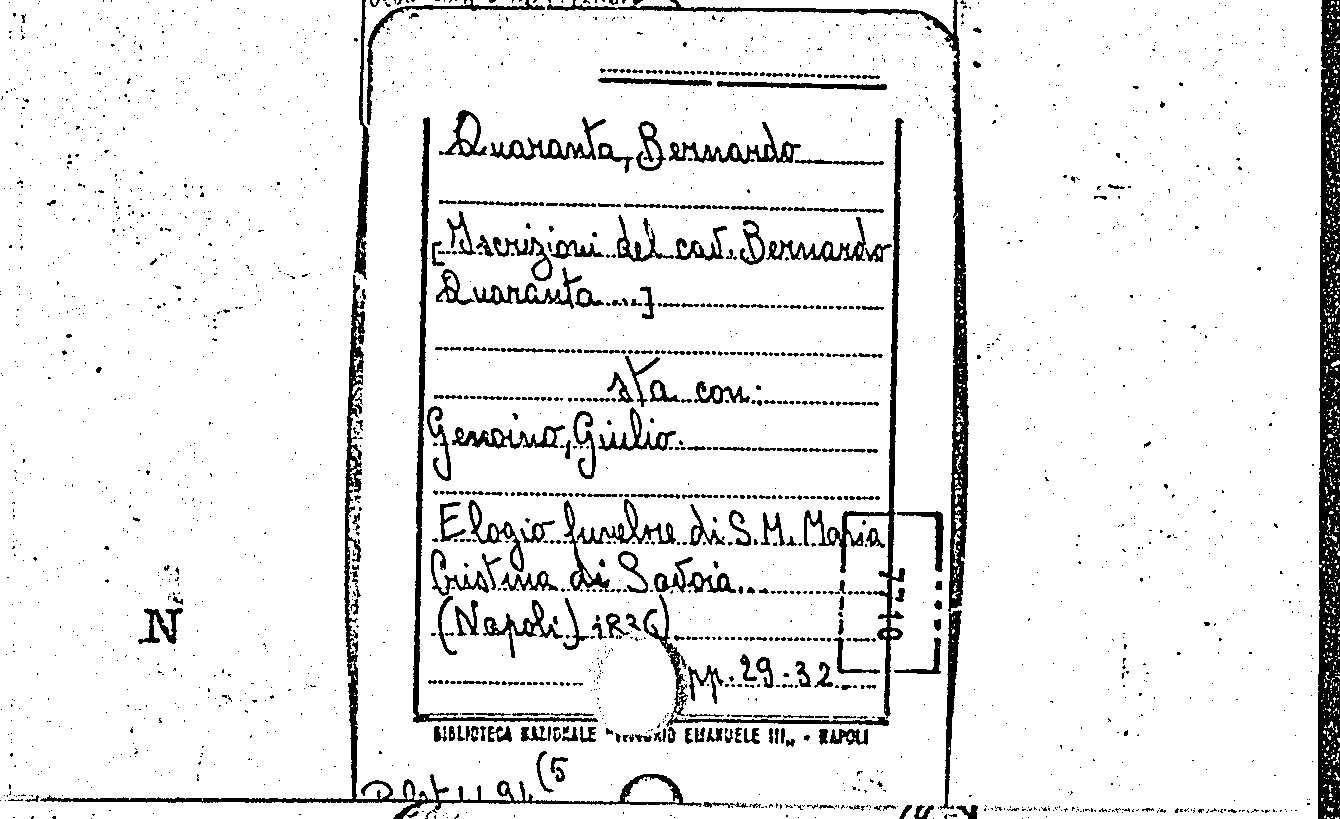 Quaranta, Bernardo
[Iscrizioni del cav. Bernardo
Quaranta...]
sta con:
Genoino, Giulio.
Elogio funebre di S.M. Maria
Cristina di Savoia...
(Napoli) 1836)
pp. 29-32
BIBLIOTECA NAZIONALE "VITTORIO EMANUELE III„ - NAPOLI
(5
N